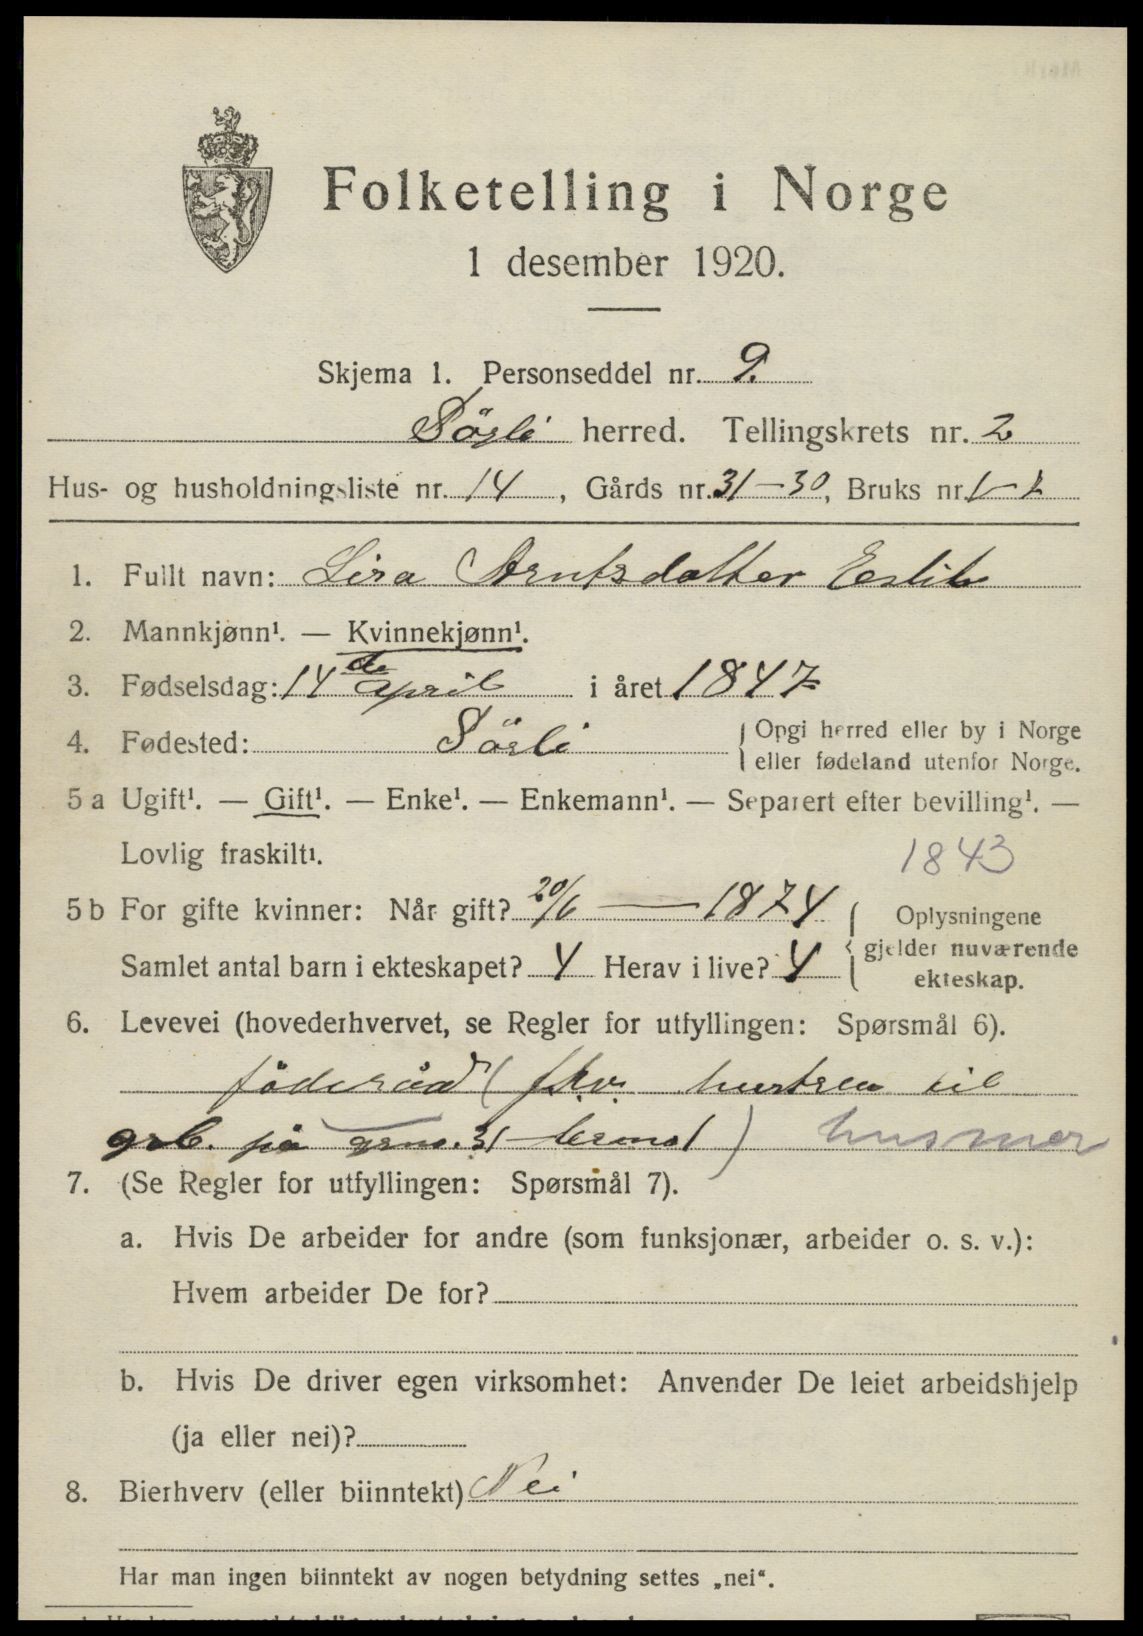 Folketelling i Norge
1 desember 1920.
Skjema 1. Personseddel nr. 9.
Sörli herred. Tellingskrets nr. 2
Hus- og husholdningsliste nr. 14, Gårds nr. 31-30, Bruks nr. 1-1
1. Fullt navn: Lisa Arntsdatter Estil
2. Mannkjønn¹. — Kvinnekjønn¹.
3. Fødselsdag: 14de april i året 1847
4. Fødested: Sörli { Opgi herred eller by i Norge
eller fødeland utenfor Norge.
5 a Ugift¹. — Gift¹. — Enke¹. — Enkemann¹. — Separert efter bevilling¹. —
Lovlig fraskilt¹. 1843
5 b For gifte kvinner: Når gift? 20/6 — 1874 { Oplysningene
Samlet antal barn i ekteskapet? 4 Herav i live? 4 gjelder nuværende
ekteskap.
6. Levevei (hovederhvervet, se Regler for utfyllingen: Spørsmål 6).
föderåd ( fhv. hustru til
grb. på grno. 31 brno 1 ) husmor
7. (Se Regler for utfyllingen: Spørsmål 7).
a. Hvis De arbeider for andre (som funksjonær, arbeider o. s. v.):
Hvem arbeider De for?
b. Hvis De driver egen virksomhet: Anvender De leiet arbeidshjelp
(ja eller nei)?
8. Bierhverv (eller biinntekt) Nei
Har man ingen biinntekt av nogen betydning settes „nei“.